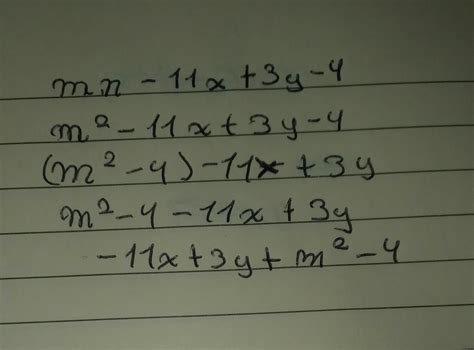 mn - 11x + 3y - 4
m² - 11x + 3y - 4
(m² - 4) - 11x + 3y
m² - 4 - 11x + 3y
- 11x + 3y + m² - 4